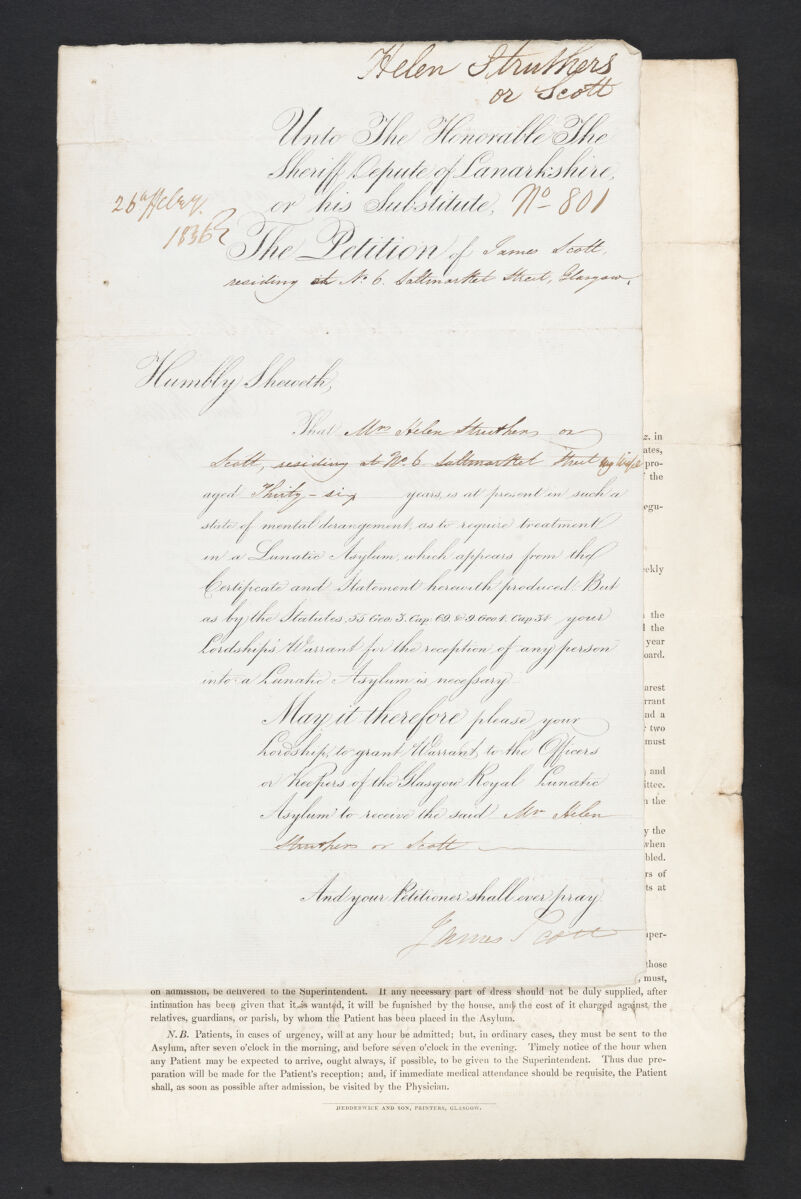 Helen Struthers
or Scott
Unto The Honorable The
Sheriff Depute of Lanarkshire,
or his Substitute, No 801
26th Feby.
1836
The Petition of James Scott,
residing at No. 6. Saltmarket Street, Glasgow,
Humbly Sheweth,
That Mrs Helen Struthers or
Scott, residing at No. 6 Saltmarket Street my Wife
aged Thirty-six years, is at present in such a
state of mental derangement, as to require treatment
in a Lunatic Asylum, which appears from the
Certificate and Statement herewith produced: But
as by the Statutes, 55 Geo 3. Cap. 69. & 9. Geo 4. Cap 34 your
Lordship's Warrant for the reception of any person
into a Lunatic Asylum is necessary
May it therefore please your
Lordship, to grant Warrant, to the Officers
or Keepers of the Glasgow Royal Lunatic
Asylum to receive the said Mrs Helen
Struthers or Scott
And your Petitioner shall ever pray.
James Scott
z. in
ates,
pro-
the
egu-
eekly
the
the
year
oard.
arest
rrant
nd a
two
must
and
ittee.
the
y the
when
bled.
rs of
ts at
uper-
those
, must,
on admission, be delivered to the Superintendent. If any necessary part of dress should not be duly supplied, after
intimation has been given that it is wanted, it will be furnished by the house, and the cost of it charged against the
relatives, guardians, or parish, by whom the Patient has been placed in the Asylum.
N.B. Patients, in cases of urgency, will at any hour be admitted; but, in ordinary cases, they must be sent to the
Asylum, after seven o'clock in the morning, and before seven o'clock in the evening. Timely notice of the hour when
any Patient may be expected to arrive, ought always, if possible, to be given to the Superintendent. Thus due pre-
paration will be made for the Patient's reception; and, if immediate medical attendance should be requisite, the Patient
shall, as soon as possible after admission, be visited by the Physician.
HEDDERWICK AND SON, PRINTERS, GLASGOW.